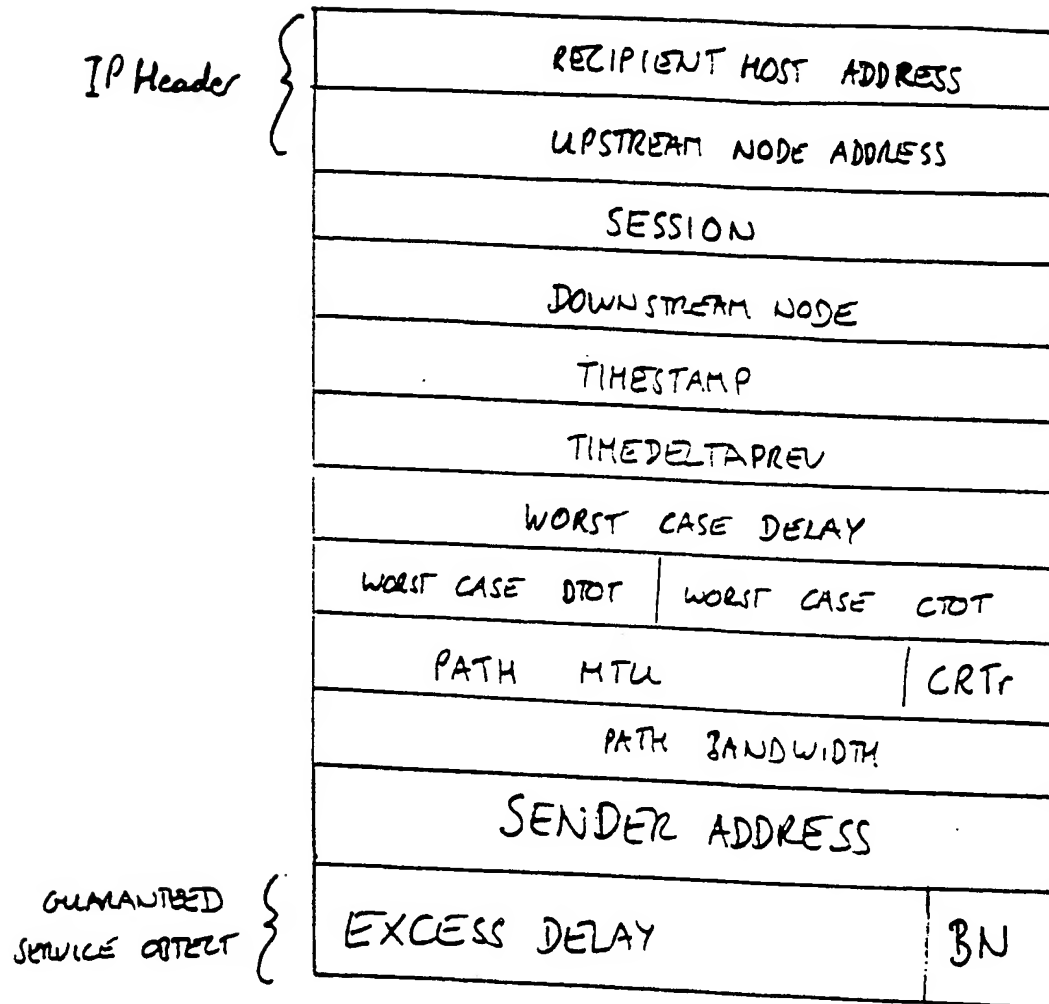 IP Header
RECIPIENT HOST ADDRESS
UPSTREAM NODE ADDRESS
SESSION
DOWNSTREAM NODE
TIMESTAMP
TIMEDELTAPREV
WORST CASE DELAY
WORST CASE DTOT WORST CASE CTOT
PATH MTU CRTr
PATH BANDWIDTH
SENDER ADDRESS
GUARANTEED
SERVICE OBJECT
EXCESS DELAY BN